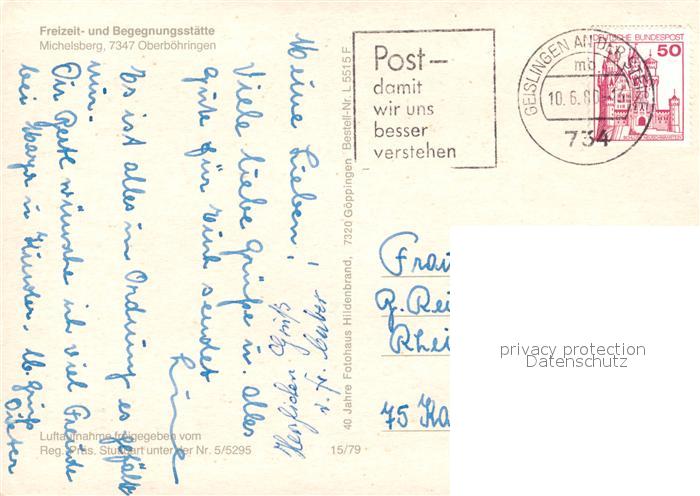 Freizeit- und Begegnungsstätte
Michelsberg, 7347 Oberböhringen
Meine Lieben!
Viele liebe Grüße u. alles
Gute für Euch sendet
Es ist alles in Ordnung es gefällt
mir.
Dir wünsche ich viel Freude
bei
Herzlichen Gruß
Luftaufnahme freigegeben vom
Reg. Präs. Stuttgart unter der Nr. 5/5295
15/79
40 Jahre Fotohaus Hildenbrand, 7320 Göppingen Bestell-Nr. L 5515 F
Post–
damit
wir uns
besser
verstehen
GEISLINGEN AN DER STEIGE
mb
10.6.80
734
DEUTSCHE BUNDESPOST
50
Frau
G. Rei
Rhei
75 Ka
privacy protection
Datenschutz